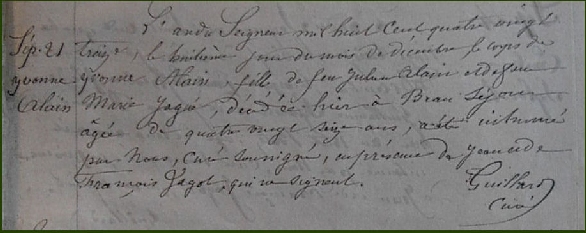 L'an du Seigneur mil huit cent quatre vingt
Sép. 21 treize, le huitième jour du mois de décembre, le corps de
yvonne yvonne Alain, fille de feu Julien Alain et de feu
Alain Marie Jagu, décédée hier à Beau Séjour
âgée de quatre vingt seize ans, a été inhumé
par Nous, Curé soussigné, en présence de Jean et de
François Jagot, qui ne signent.
Guillard
Curé